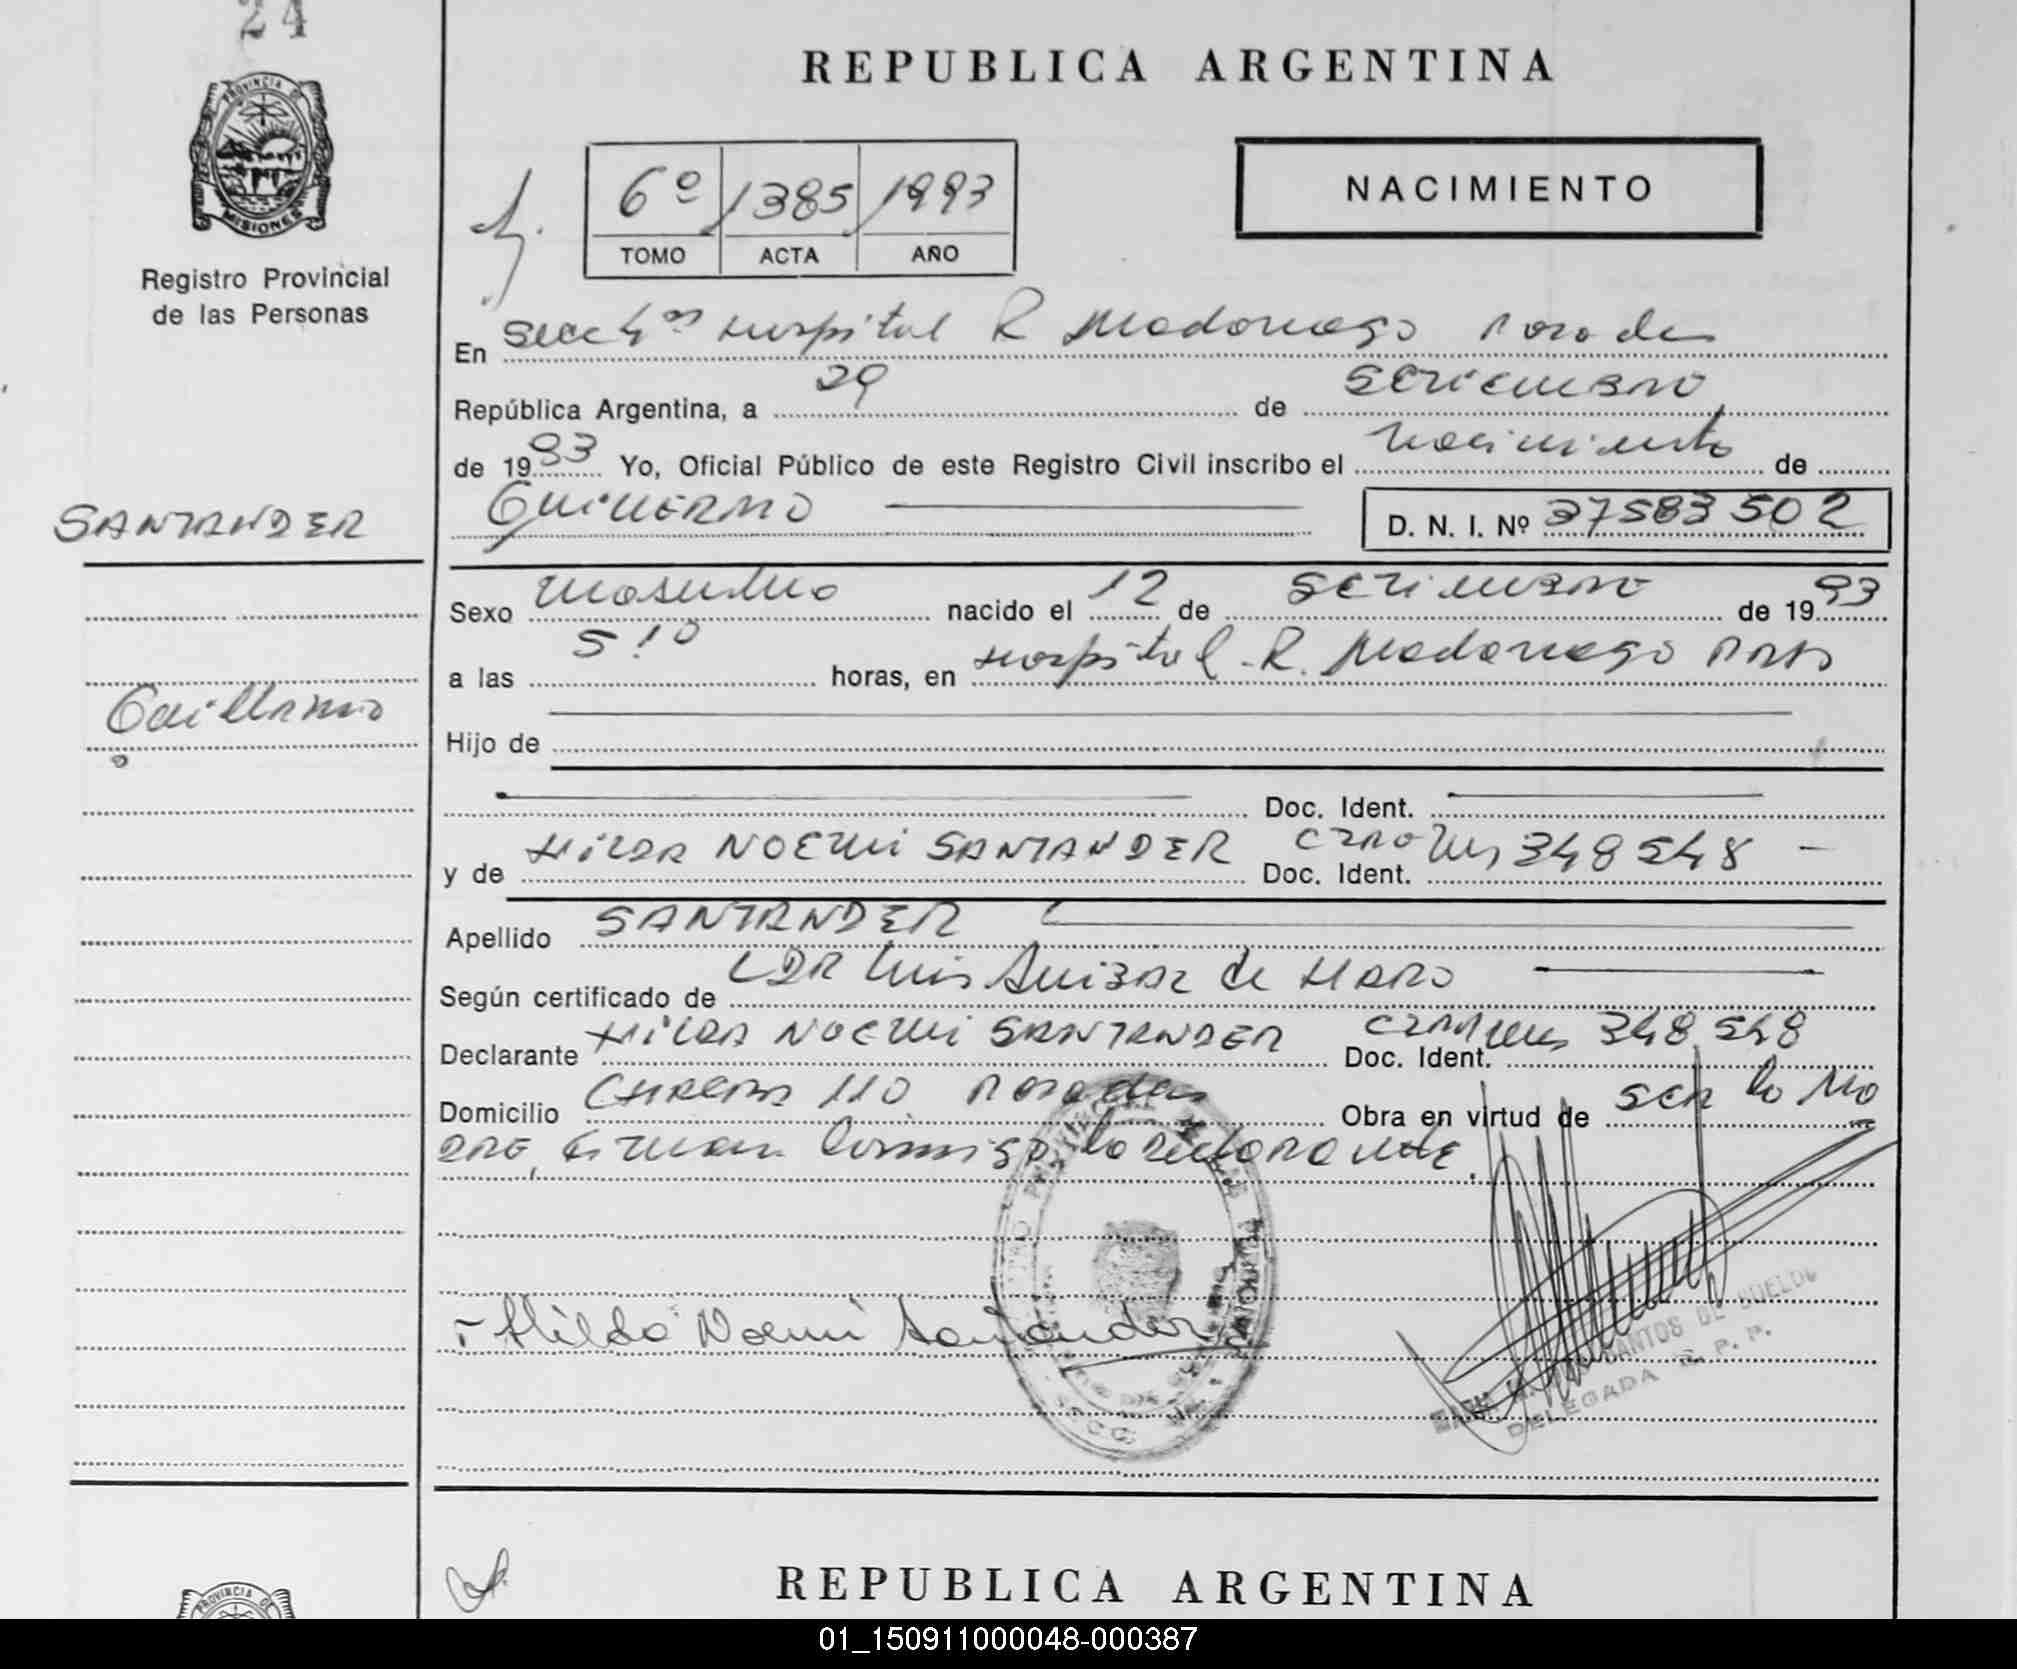 24
REPUBLICA ARGENTINA
PROVINCIA DE
MISIONES
Registro Provincial
de las Personas
6º 1385 1993
TOMO ACTA AÑO
NACIMIENTO
En Secc 4ª Hospital R Madariaga Posadas
República Argentina, a 29 de Setiembre
de 1993 Yo, Oficial Público de este Registro Civil inscribo el Nacimiento de
SANTANDER
Guillermo
GUILLERMO D. N. I. Nº 37583502
Sexo Masculino nacido el 12 de Setiembre de 1993
a las 5:10 horas, en Hospital R. Madariaga Pdas
Hijo de
Doc. Ident.
y de HILDA NOEMI SANTANDER Doc. Ident. 348548
Apellido SANTANDER
Según certificado de Luis de HARO
Declarante HILDA NOEMI SANTANDER Doc. Ident. 348.548
Domicilio 110 Posadas Obra en virtud de ser la Ma
dre, Firman conmigo la declarante.
Hilda Noemi Santander
SANTOS DE
DELEGADA R. P. P.
REPUBLICA ARGENTINA
PROVINCIA DE
01_150911000048-000387